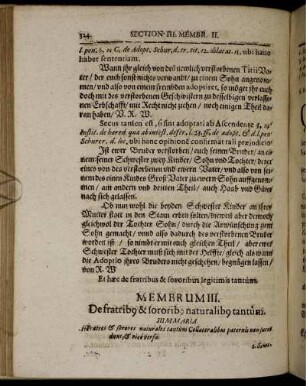 324 SECTION. III. MEMBR. II.
l. pen. §. 12 C. de Adopt. Schur. d. tr. tit. 12. ubi hanc
habet sententiam.
Wann ihr gleich von deß newlich verstorbenen Titii Vat-
ter / der euch sonst nichts verwandt / zu einem Sohn angenom-
men / und also von einem frembden adoptiret, so möget ihr euch
doch mit des verstorbenen Geschwistern zu desselbigen verlasse-
nen Erbschafft / mit Recht nicht ziehen / noch einigen Theil dar-
an haben / V. R. W.
Secus tamen est, si sint adoptati ab Ascendente
Schurer. d. loc. ubi hanc opinionem confirmat tali praejudicio:
Ist ewer Bruder verstorben / auch seiner Bruder / an ei-
nem seiner Schwester zwey Kinder / Sohn und Tochter / dero
eines von des verstorbenen und ewerm Vater / und also von sei-
nem des einen Kindes Groß Vater zu ewerm Sohn auffgenom-
men / am andern und dritten Theil / auch Haab und Güter
nach sich gelassen.
Ob nun wohl die beyden Schwester Kinder an ihrer
Mutter statt in den Stam erben solten / dieweil aber dennoch
gleichwol der Tochter Sohn / durch die Anwünschung zum
Sohn gemacht / und also dadurch des verstorbenen Bruder
worden ist / so nimbt er mit euch gleichen Theil / aber ewer
Schwester Tochter muß sich mit der Helffte / gleich als wann
die Adoptio ihres Bruders nicht geschehen / begnügen lassen /
von R. W
Et haec de fratribus & sororibus legitimis tantùm.
MEMBRUM III.
De fratribꝰ & sororibꝰ naturalibꝰ tantùm.
SUMMARIA
fratres & sorores naturales tantùm Collateralibus paternis non succe-
dunt, & vice versa